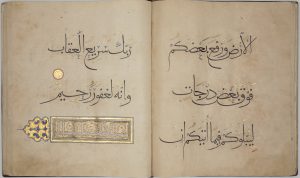 الارض ورفع بعضكم
فوق بعض درجات
ليبلوكم فيما اتيكم ان
ربك سريع العقاب
وانه لغفور رحيم